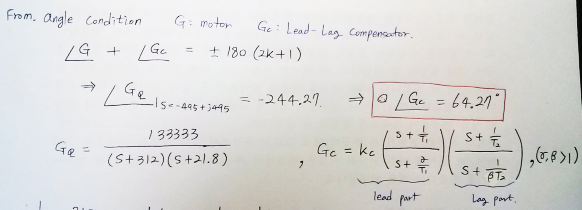 From. angle condition G: motor Gc: Lead-Lag compensator.
∠G + ∠Gc = ± 180 (2k+1)
⇒ ∠G_Q |s=-495+j495 = -244.27. ⇒ ∠Gc = 64.27°
G_Q = 133333 / (S+312)(S+21.8) , Gc = Kc ( (S + 1/T1) / (S + γ/T1) ) ( (S + 1/T2) / (S + 1/βT2) ) , (γ,β>1)
lead part Lag part.